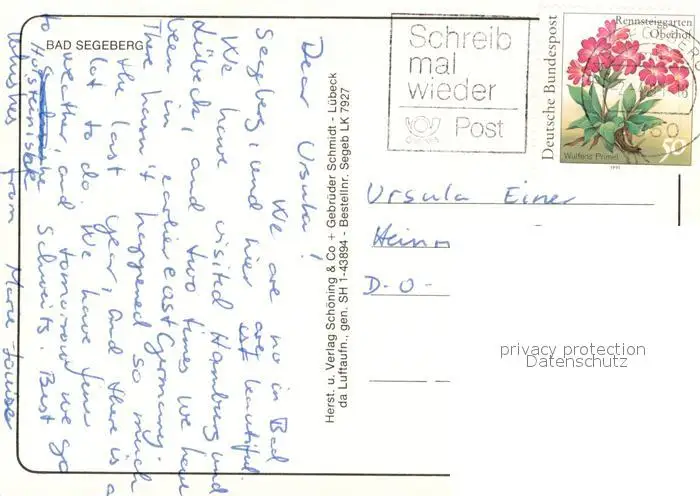 BAD SEGEBERG
Dear Ursula!
We are no in Bad
Segeberg, und hier are ist beautiful
We have visited Hamburg und
Lübeck, and two times we have
been in earlier east Germany.
There hasn't happened so much
the last year, and there is a
lot to do. We have fine
weather, and tomorrow we go
to Holsteinishe Schweits. Best
Whishes from Marie-Louise
Herst. u. Verlag Schöning & Co + Gebrüder Schmidt - Lübeck
da Luftaufn., gen. SH 1-43894 - Bestellnr. Segeb LK 7927
Schreib
mal
wieder
Post
Deutsche Bundespost
Rennsteiggarten
Oberhof
Wulfens Primel
50
1991
Ursula Einer
Hein
D-O-
privacy protection
Datenschutz